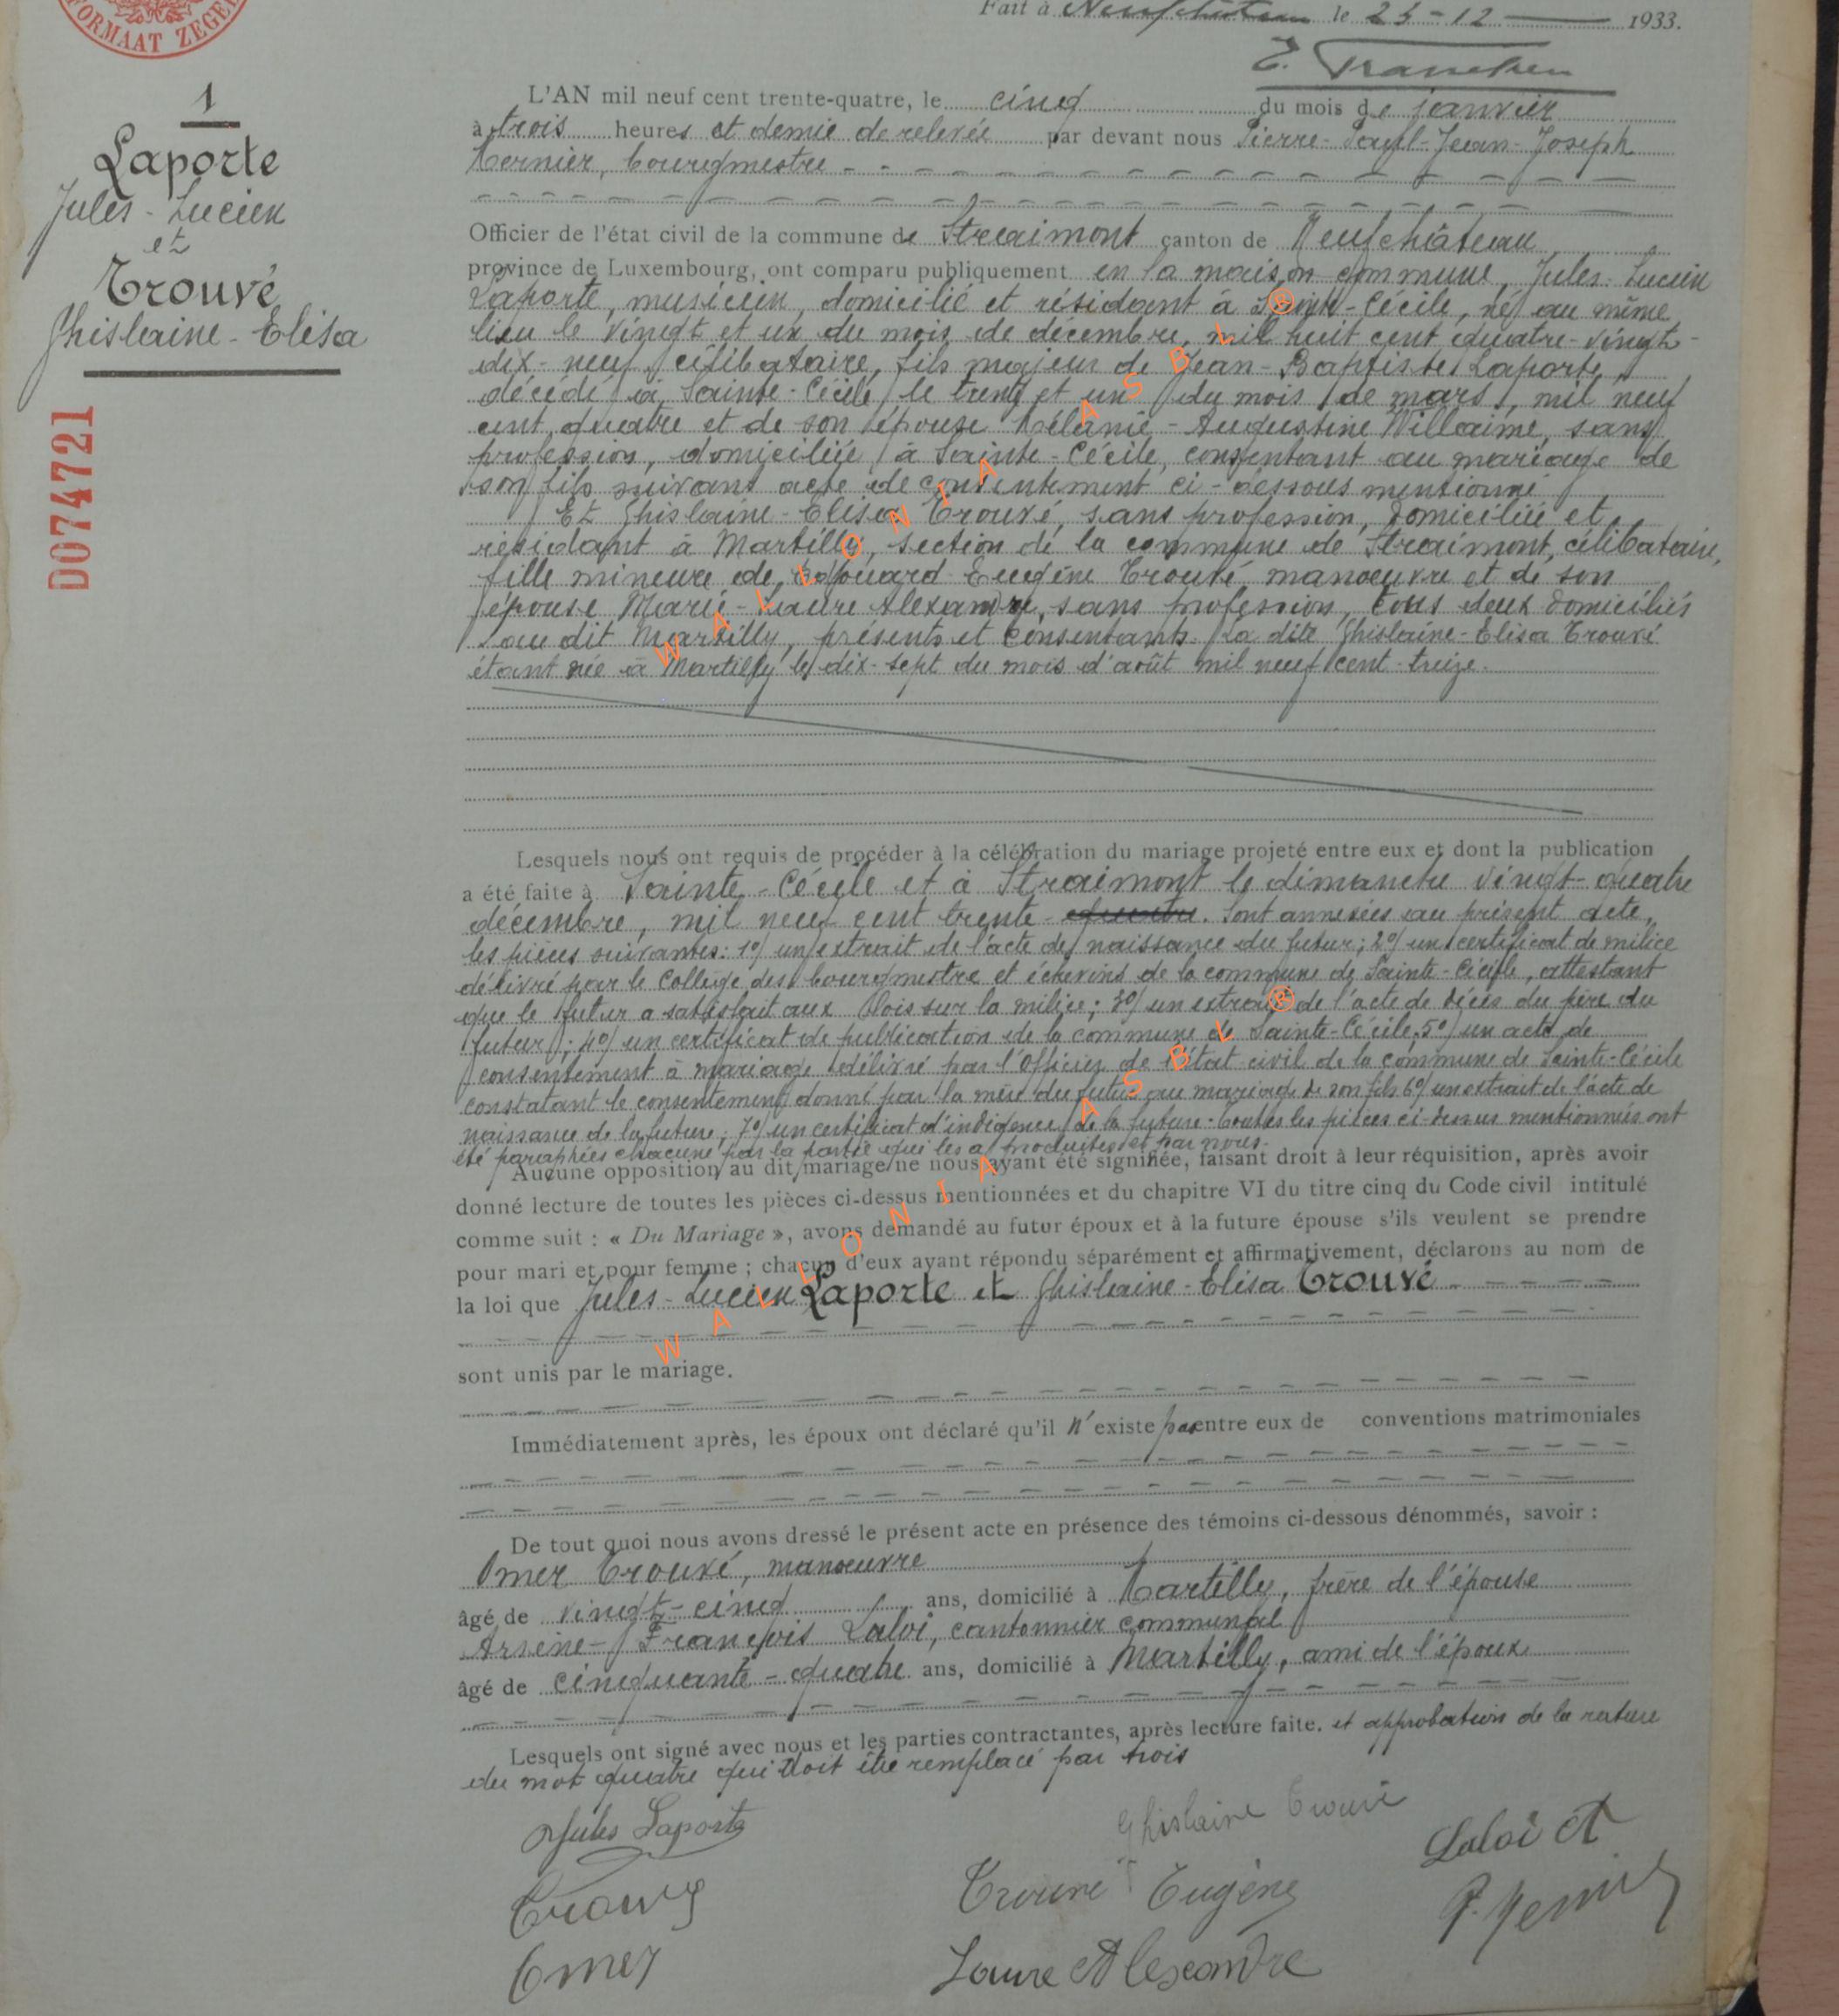 FORMAAT ZEGEL
Fait à Neufchâteau le 25-12 1933.
1
Laporte
Jules-Lucien
et
Trouvé
Ghislaine-Elisa
D074721
L'AN mil neuf cent trente-quatre, le cinq du mois de janvier
à trois heures et demie de relevée par devant nous Pierre-Paul-Jean-Joseph
bourgmestre
Officier de l'état civil de la commune de Straimont canton de Neufchâteau
province de Luxembourg, ont comparu publiquement en la maison commune, Jules-Lucien
Laporte, musicien, domicilié et résidant à Sainte-Cécile, né au même
lieu le vingt et un du mois de décembre, mil huit cent quatre-vingt-
dix-neuf, célibataire, fils majeur de Jean-Baptiste Laporte,
décédé à Sainte-Cécile, le trente et un du mois de mars, mil neuf
cent quatre et de son épouse Mélanie-Augustine Willaime, sans
profession, domiciliée à Sainte-Cécile, consentant au mariage de
son fils suivant acte de consentement ci-dessous mentionné
Et Ghislaine-Elisa Trouvé, sans profession, domiciliée et
résidant à Martilly, section de la commune de Straimont, célibataire,
fille mineure de Edouard-Eugène Trouvé, manoeuvre et de son
épouse Marie-Laure Alexandre, sans profession, tous deux domiciliés
au dit Martilly, présents et consentants. La dite Ghislaine-Elisa Trouvé
étant née à Martilly le dix-sept du mois d'août mil neuf cent-treize.
Lesquels nous ont requis de procéder à la célébration du mariage projeté entre eux et dont la publication
a été faite à Sainte-Cécile et à Straimont le dimanche vingt-quatre
décembre, mil neuf cent trente-quatre. Sont annexées au présent acte,
les pièces suivantes: 1º/ un extrait de l'acte de naissance du futur; 2º/ un certificat de milice
délivré par le Collège des bourgmestre et échevins de la commune de Sainte-Cécile, attestant
que le futur a satisfait aux lois sur la milice; 3º/ un extrait de l'acte de décès du père du
futur; 4º/ un certificat de publication de la commune de Sainte-Cécile, 5º/ un acte de
consentement à mariage délivré par l'Officier de l'état civil de la commune de Sainte-Cécile
constatant le consentement donné par la mère du futur au mariage de son fils 6º/ un extrait de l'acte de
naissance de la future; 7º/ un certificat d'indigence de la future. Toutes les pièces ci-dessus mentionnées ont
été paraphées chacune par la partie qui les a produites et par nous.
Aucune opposition au dit mariage ne nous ayant été signifiée, faisant droit à leur réquisition, après avoir
donné lecture de toutes les pièces ci-dessus mentionnées et du chapitre VI du titre cinq du Code civil intitulé
comme suit : « Du Mariage », avons demandé au futur époux et à la future épouse s'ils veulent se prendre
pour mari et pour femme ; chacun d'eux ayant répondu séparément et affirmativement, déclarons au nom de
la loi que Jules-Lucien Laporte et Ghislaine-Elisa Trouvé
sont unis par le mariage.
Immédiatement après, les époux ont déclaré qu'il n'existe pas entre eux de conventions matrimoniales
De tout quoi nous avons dressé le présent acte en présence des témoins ci-dessous dénommés, savoir :
Omer Trouvé, manoeuvre
âgé de vingt-cinq ans, domicilié à Martilly, frère de l'épouse
Arsène-François Laloi, cantonnier communal
âgé de cinquante-quatre ans, domicilié à Martilly, ami de l'époux
Lesquels ont signé avec nous et les parties contractantes, après lecture faite. et approbation de la rature
du mot quatre qui doit être remplacé par trois
Jules Laporte
Ghislaine Trouvé
Laloi A
Trouvé
Trouvé Eugène
Omer
Laure Alexandre
WALLONIA ASBL ®
WALLONIA ASBL ®